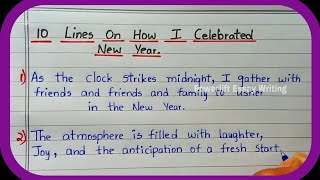 10 Lines On How I Celebrated
New Year.
1) As the clock strikes midnight, I gather with
friends and friends and family to usher
in the New Year.
2) The atmosphere is filled with laughter,
Joy, and the anticipation of a fresh start.